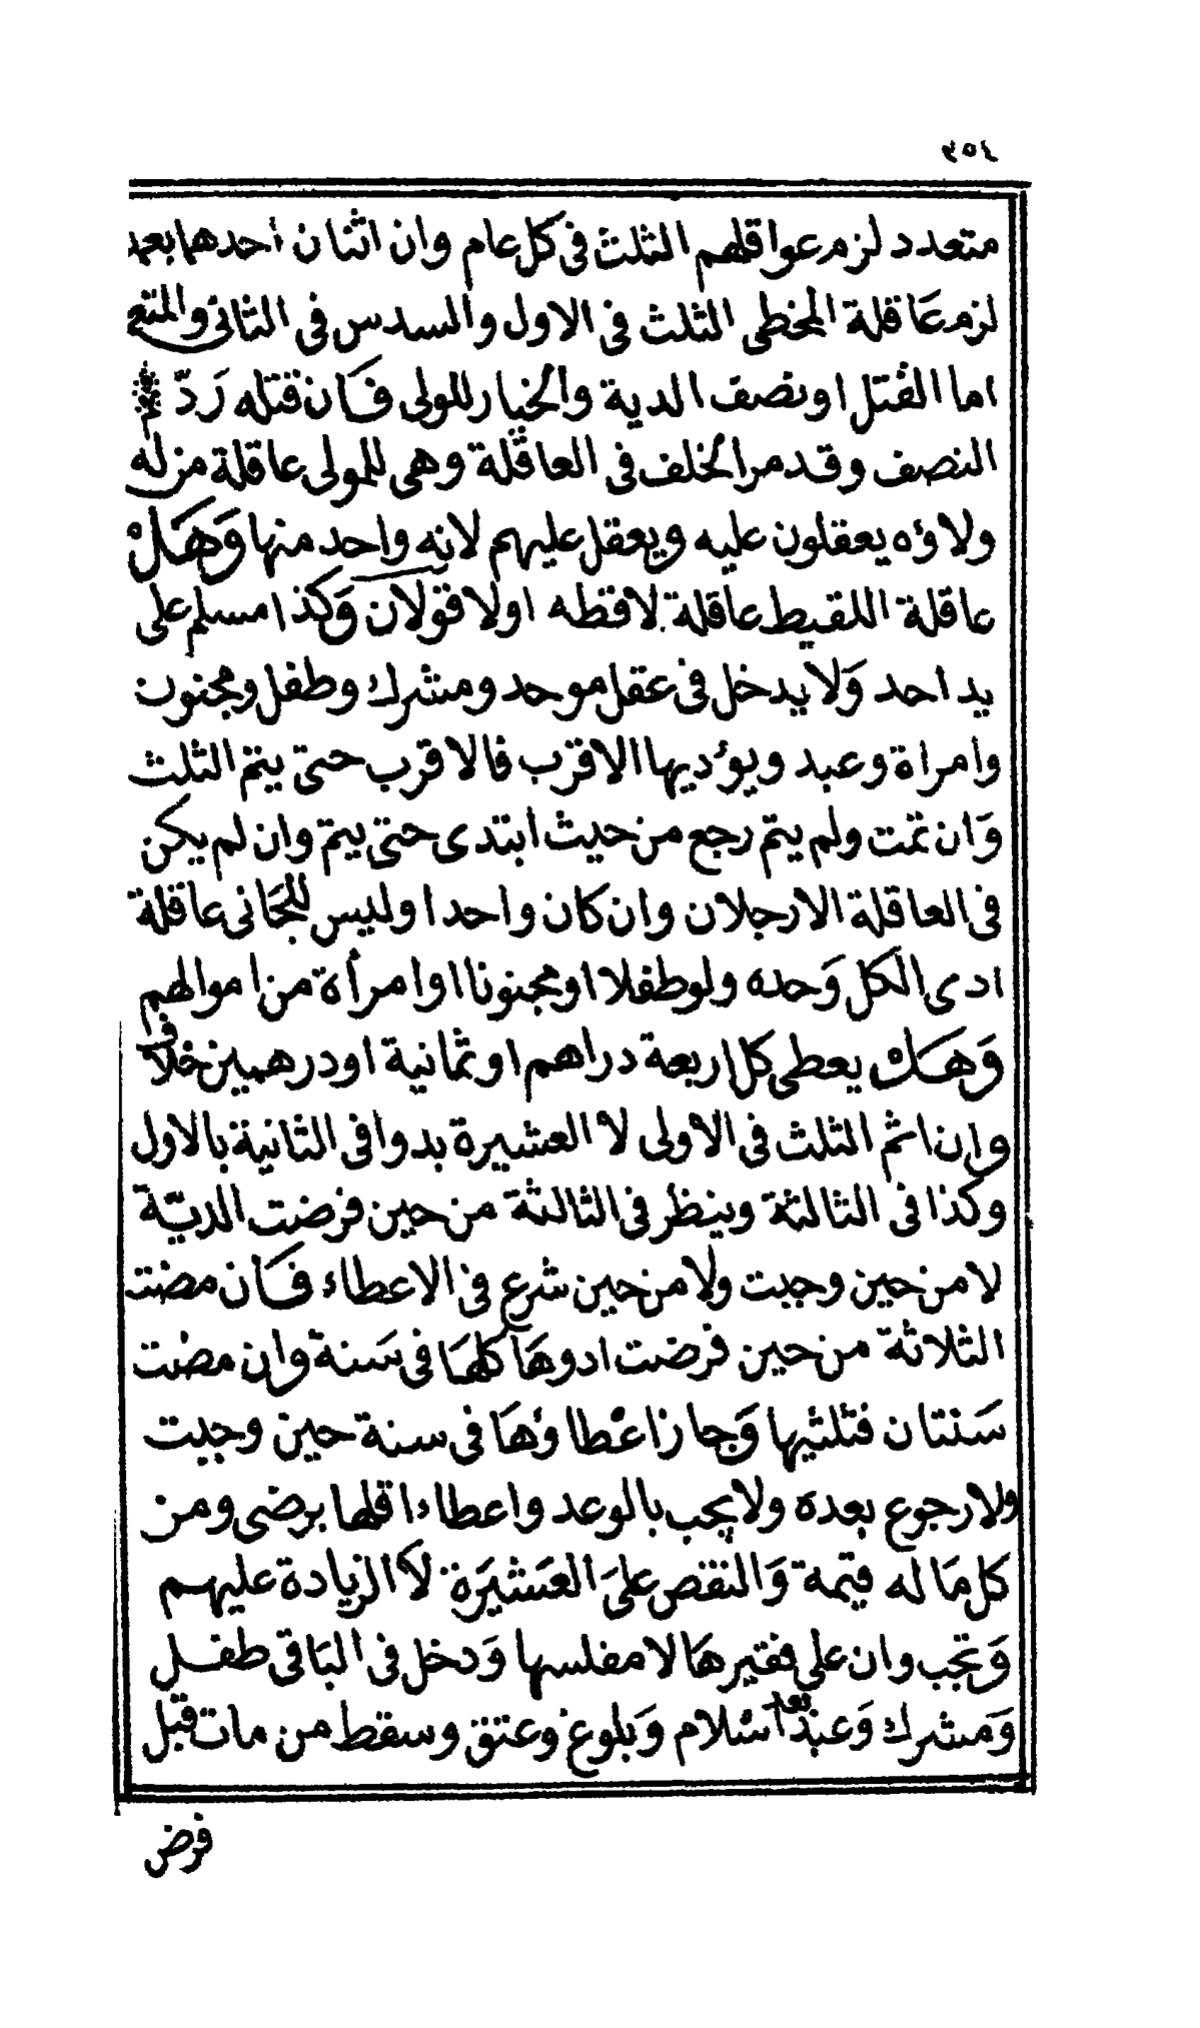 ٢٥٤
متعدد لزم عواقلهم الثلث فى كل عام وان اثنان أحدهما بعمد
لزم عَاقلة المخطى الثلث فى الاول والسدس فى الثانى والمتع
اما القتل او نصف الدية والخيار للولى فَان قتله رَدّ
النصف وقد مر الخلف فى العاقلة وهى للمولى عاقلة من له
ولاؤه يعقلون عليه ويعقل عليهم لانه واحد منها وَهَل
عاقلة اللقيط عاقلة لاقطه اولا قولان وَكذا مسلم على
يد احد وَلا يدخل فى عقل موحد ومشرك وطفل ومجنون
وامراة وعبد ويؤديها الاقرب فالاقرب حتى يتم الثلث
وَان تمت ولم يتم رجع من حيث ابتدى حتى يتم وان لم يكن
فى العاقلة الا رجلان وان كان واحدا وليس للجَانى عاقلة
ادى الكل وَحده ولو طفلا او مجنونا او امرأة من اموالهم
وَهَل يعطى كل اربعة دراهم او ثمانية او درهمين خلاف
وان اتم الثلث فى الاولى لا العشيرة بدوا فى الثانية بالاول
وكذا فى الثالثة وينظر فى الثالثة من حين فرضت الديّة
لا من حين وجبت ولا من حين شرع فى الاعطاء فَان مضت
الثلاثة من حين فرضت ادوهَا كلهَا فى سَنة وان مضت
سَنتان فثلثيها وَجاز اعْطاؤهَا فى سنة حين وجبت
ولا رجوع بعده ولا يجب بالوعد واعطاء اقلها برضى ومن
كل مَا له قيمة وَالنقص علىَ العَشيَرة لاَ الزيادة عليهم
وَتجب وان على فقيرهَا لا مفلسها وَدخل فى البَاقى طفل
وَمشرك وَعبد بعد اسْلام وَبلوغ وعتق وسقط من مات قبل
فرض